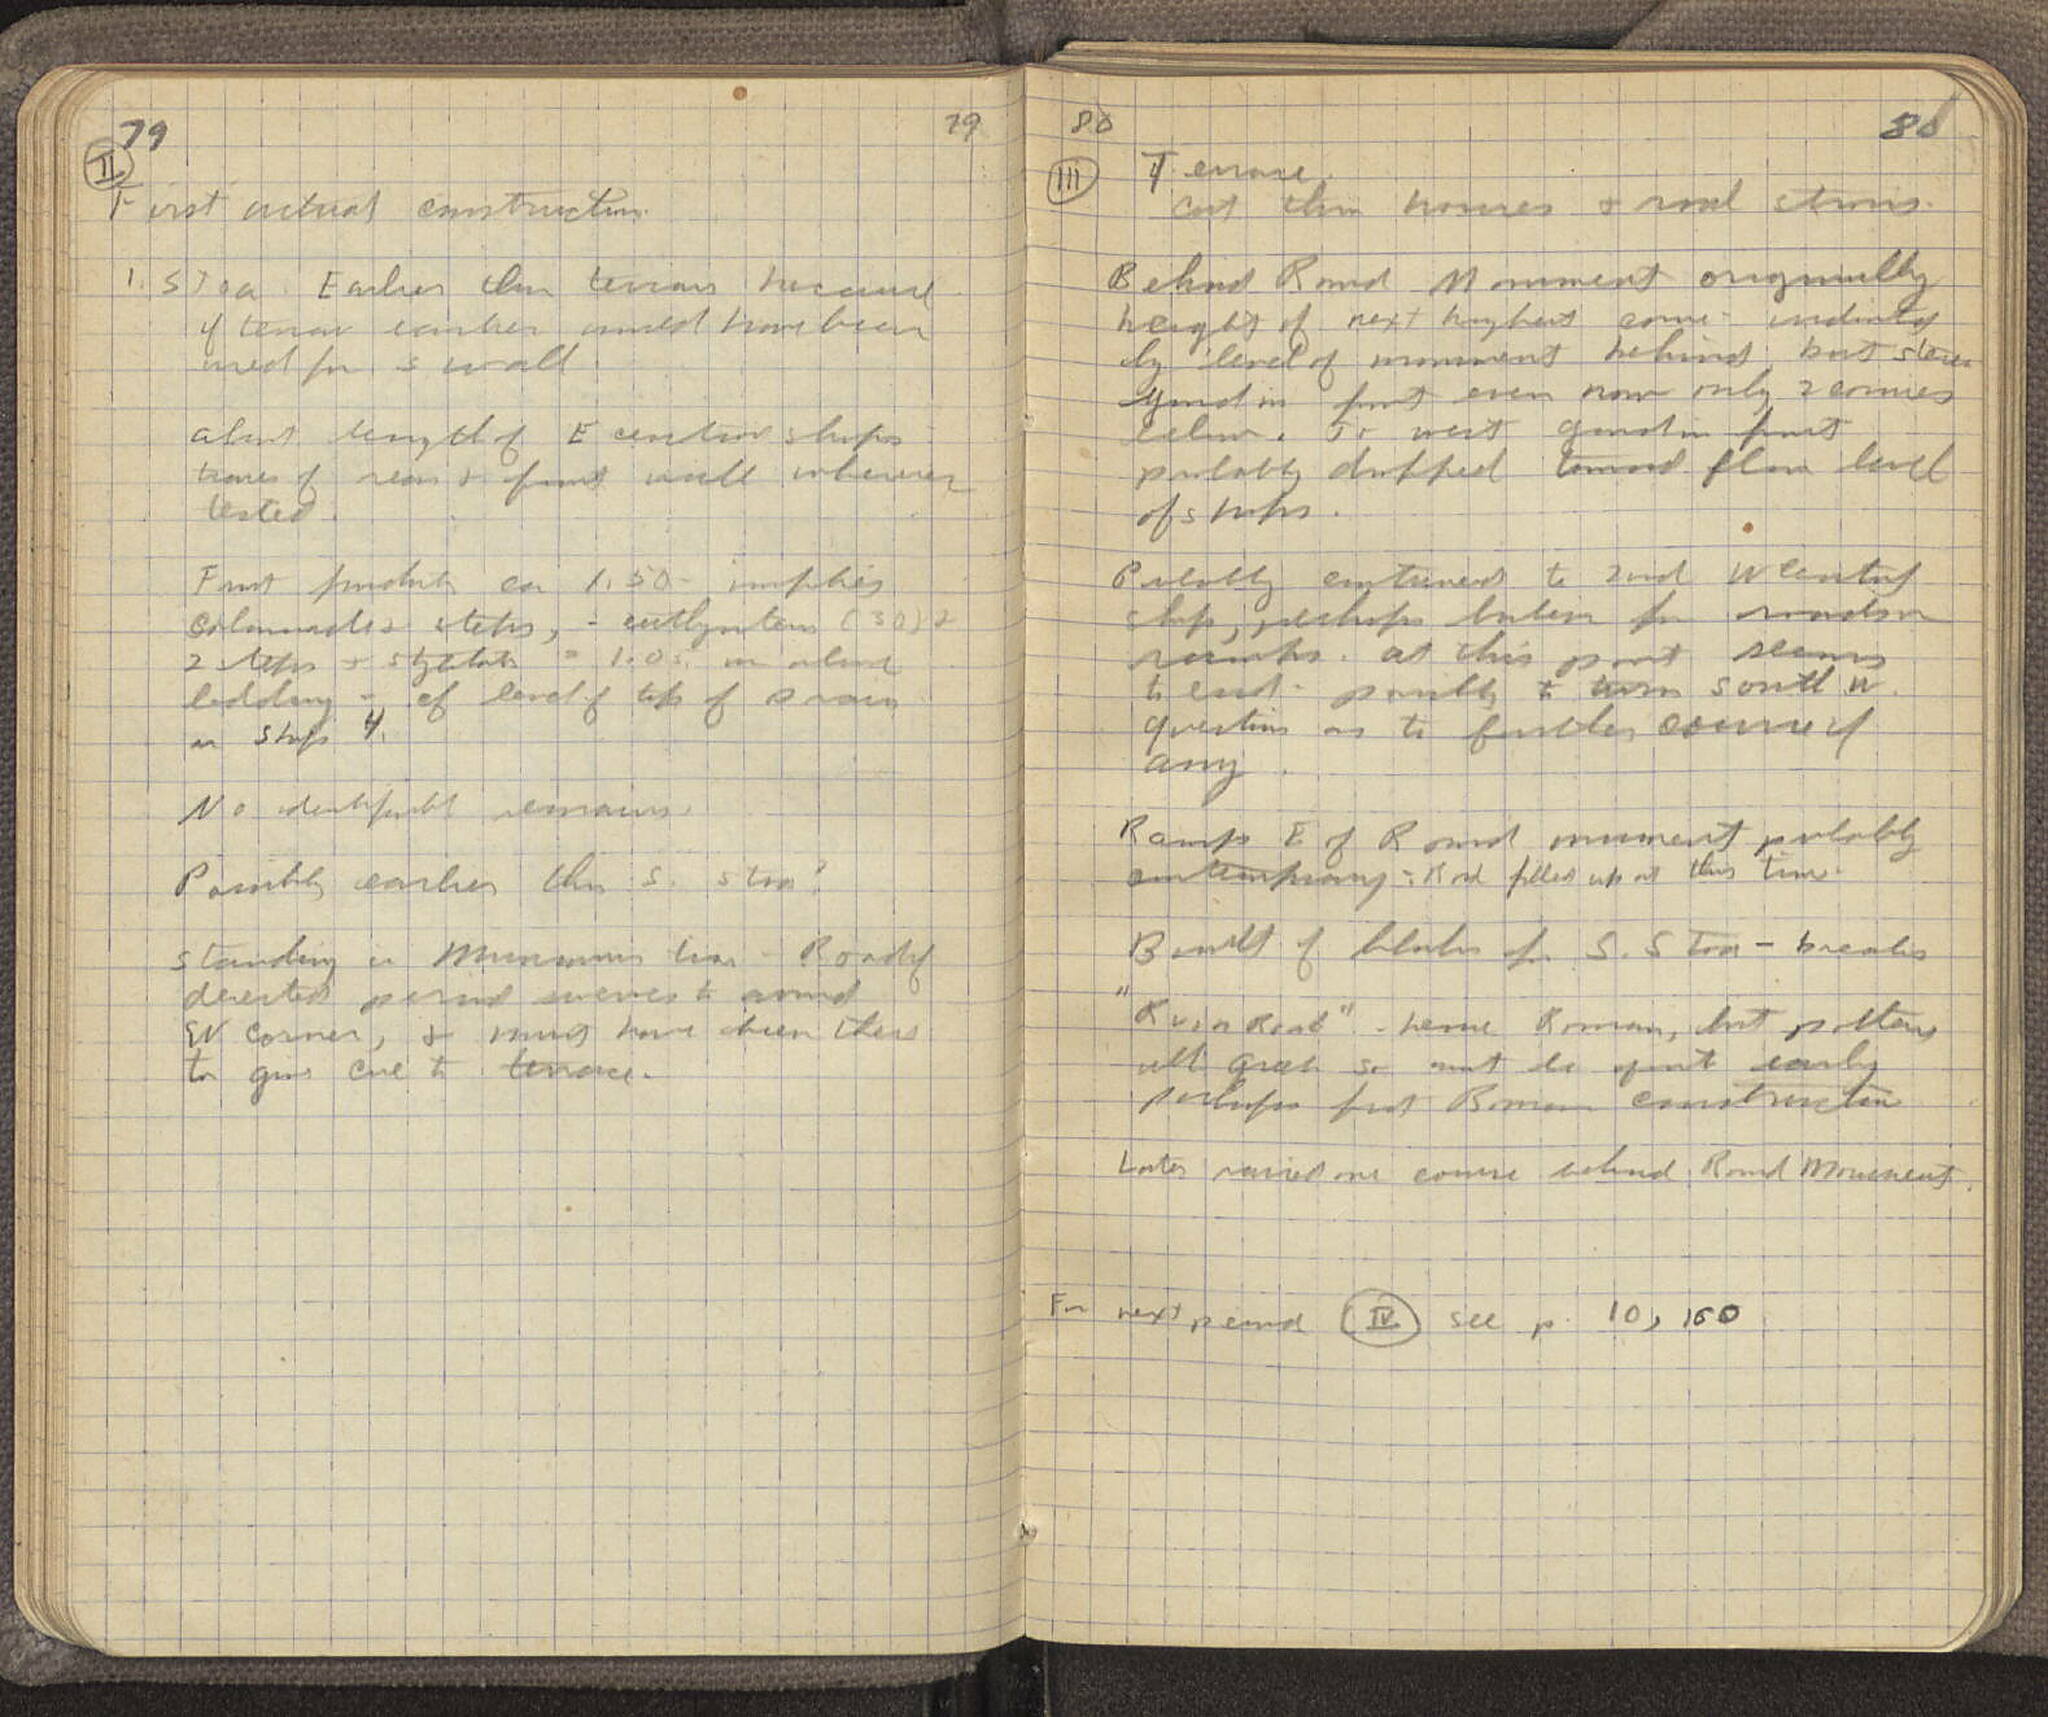 79 79
II
First actual construction.
1. Stoa. Earlier than terrace because
if terrace earlier would have been
used for S wall.
about length of E central shops
traces of rear & front wall wherever
tested.
Front probably ca 1.50 - implies
Colonnade steps, = euthynteria (30) 2
2 steps + stylobate = 1.05 in about
bedding - cf level of top of drain
in shop 4.
No identifiable remains.
Possibly earlier than S. Stoa?
standing in Mummius time - Road of
deserted period swerves to around
W corner, & must have been there
to give cue to terrace.
80 80
III Terrace.
Cut thru houses & road strosis.
Behind Round Monument originally
height of next highest course - indicated
by level of monument behind but
ground in front even now only 2 courses
below. To west ground in front
probably dropped toward floor level
of shops.
Probably continued to 2nd W Central
shop, perhaps broken for
. At this point seems
to end - possibly to turn south w.
question as to further course if
any.
Ramps E of Round monument probably
contemporary - Road filled up at this time.
Built of blocks fr. S. Stoa - breaks
"Ruin Road" - hence Roman, but pottery
all Greek so must be quite early
perhaps first Roman construction
Later raised one course behind Round Monument.
For next period IV see p. 10, 160